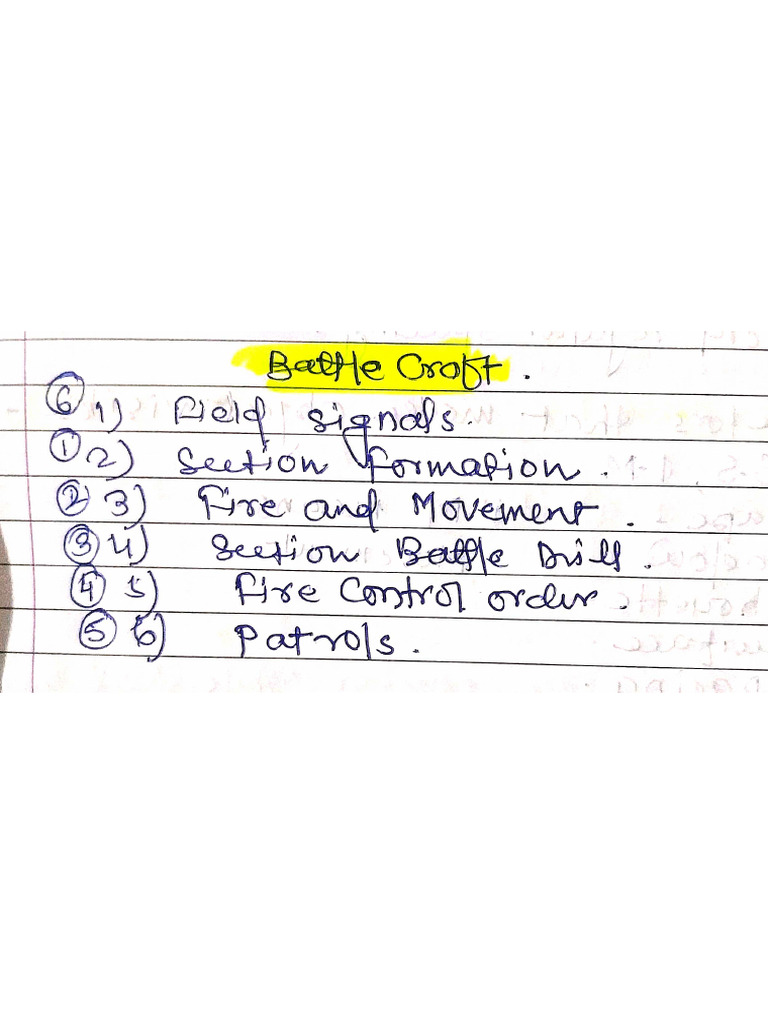 Battle Craft.
⑥ 1) Field signals.
① 2) Section formation.
② 3) Fire and Movement.
③ 4) Section Battle Drill.
④ 5) Fire Control order.
⑤ 6) Patrols.